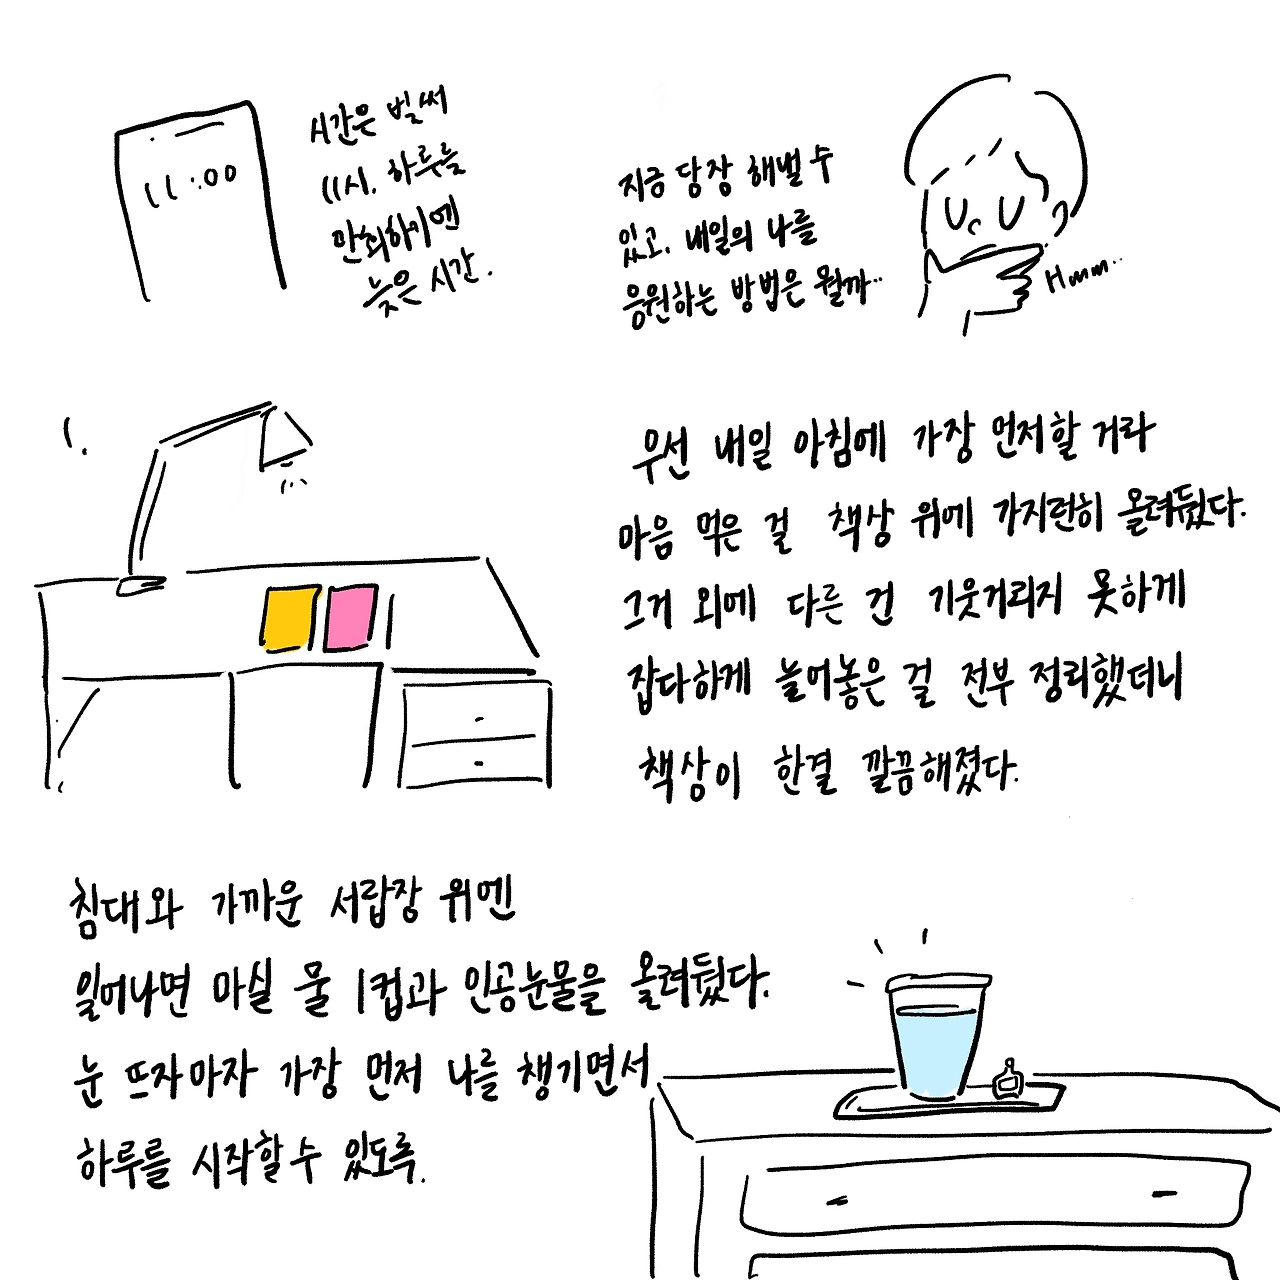 11:00
시간은 벌써
11시. 하루를
만회하기엔
늦은 시간.
지금 당장 해낼 수
있고, 내일의 나를
응원하는 방법은 뭘까..
Hmm..
우선 내일 아침에 가장 먼저할 거라
마음 먹은 걸 책상 위에 가지런히 올려뒀다.
그거 외에 다른 건 기웃거리지 못하게
잡다하게 늘어놓은 걸 전부 정리했더니
책상이 한결 깔끔해졌다.
침대와 가까운 서랍장 위엔
일어나면 마실 물 1컵과 인공눈물을 올려뒀다.
눈 뜨자마자 가장 먼저 나를 챙기면서
하루를 시작할 수 있도록.